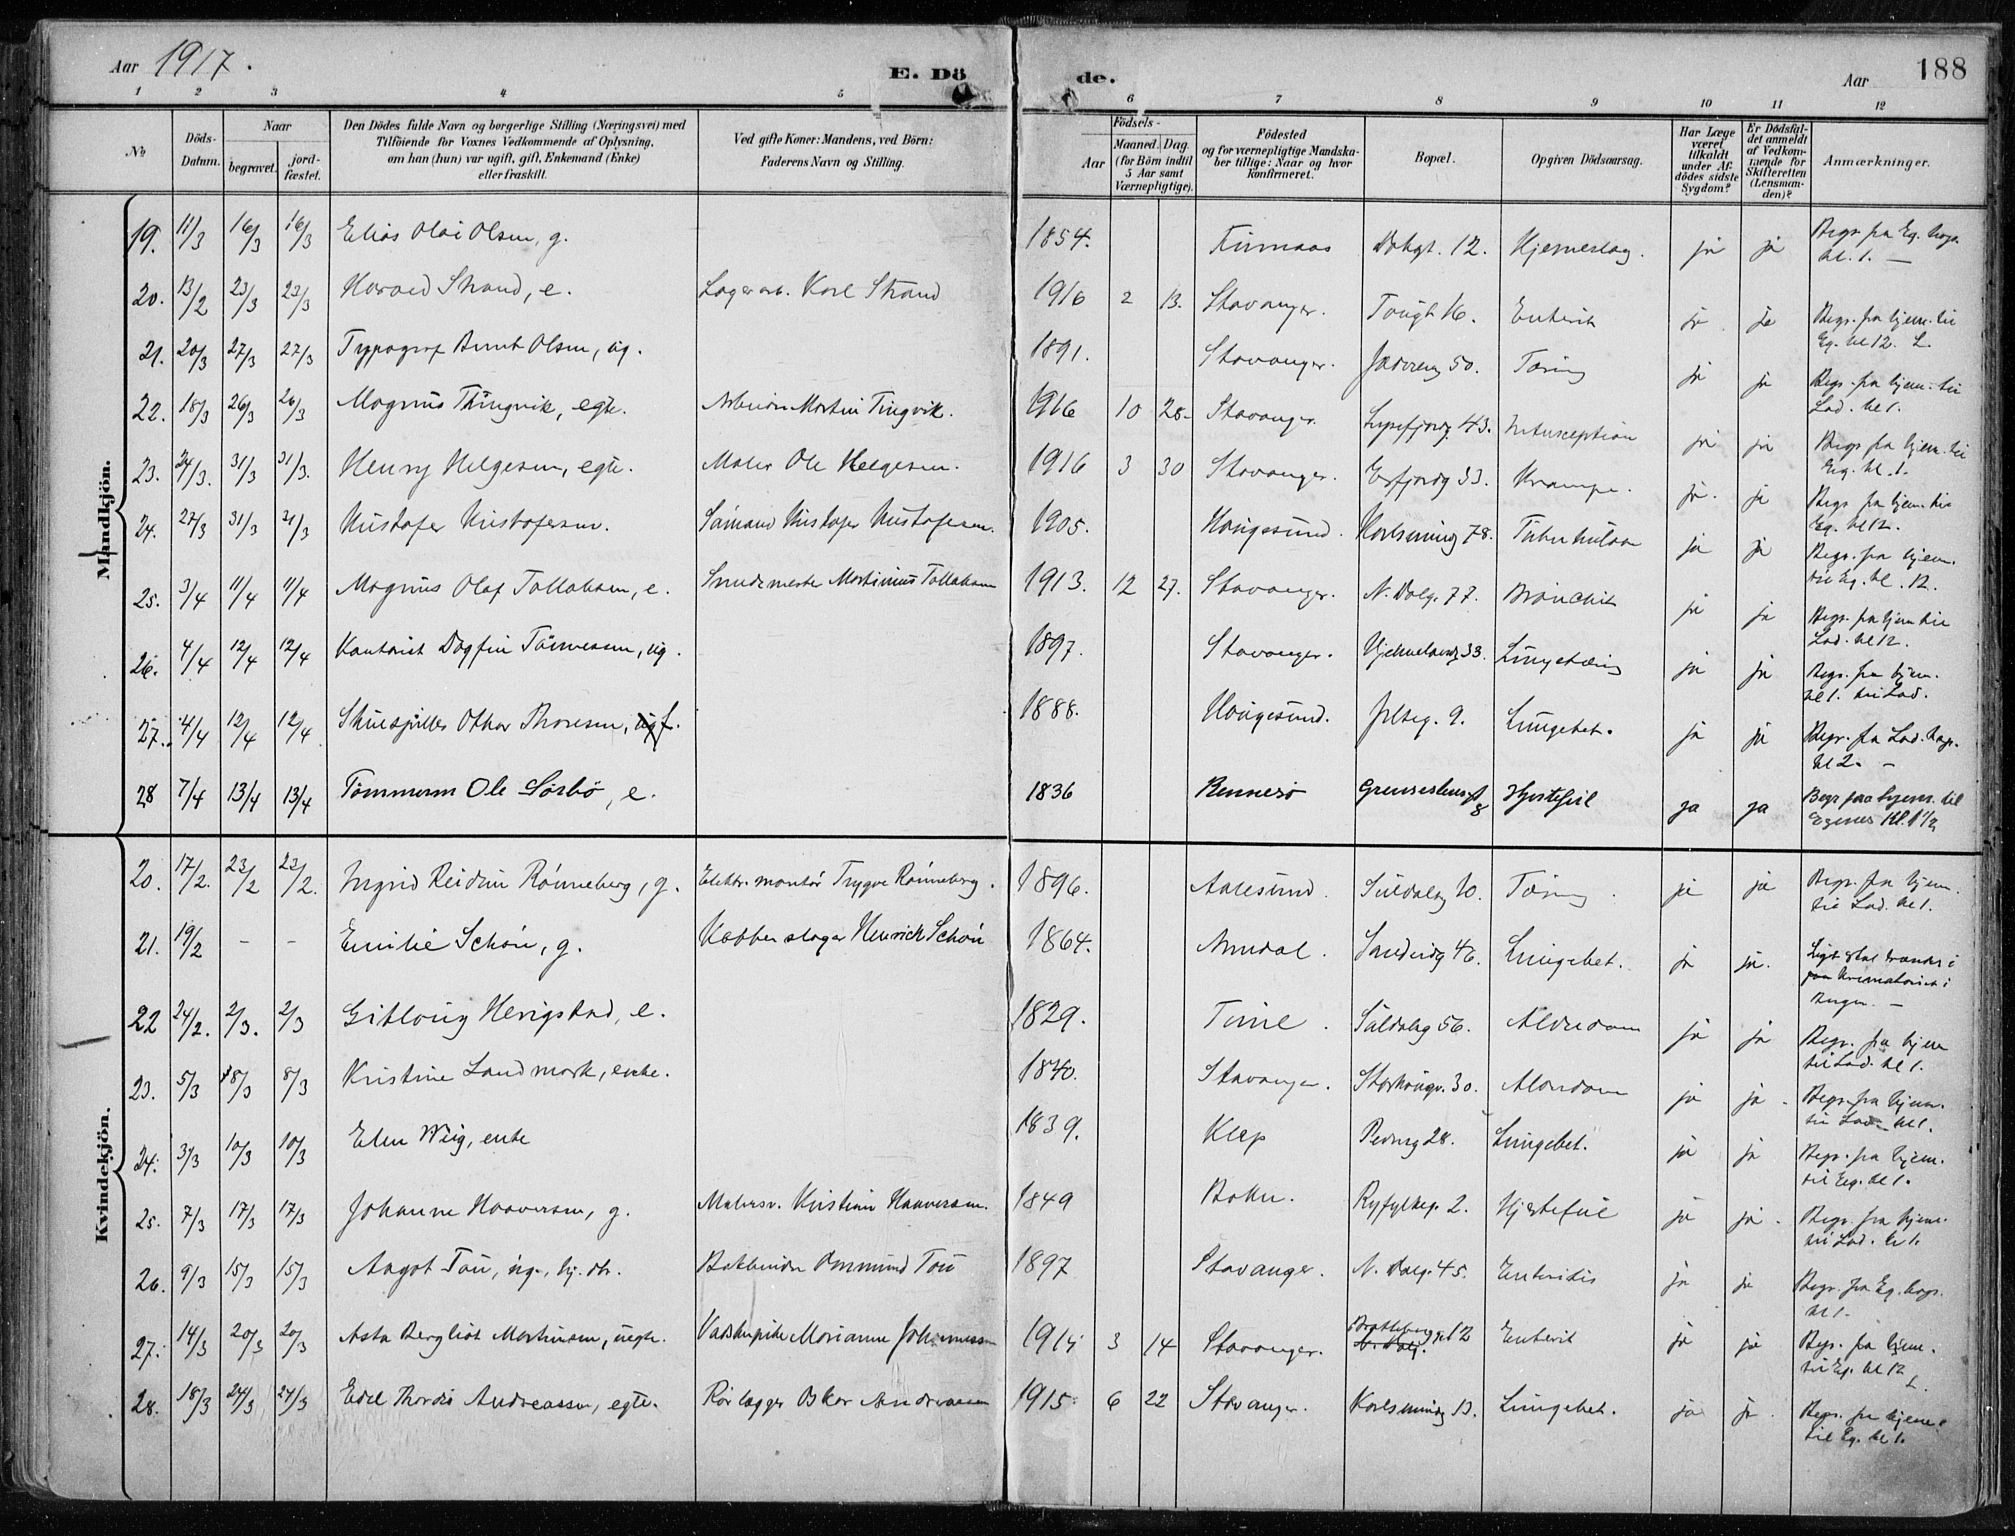 Aar 1917.
E. Dö de.
Aar 188
1 2 3 4 5 6 7 8 9 10 11 12
No
Döds-Datum.
Naar
begravet.
jord-fæstet.
Den Dödes fulde Navn og borgerlige Stilling (Næringsvei) med
Tilföiende for Voxnes Vedkommende af Oplysning,
om han (hun) var ugift, gift, Enkemand (Enke)
eller fraskilt.
Ved gifte Koner: Mandens, ved Börn:
Faderens Navn og Stilling.
Födsels-
Aar
Maaned. Dag.
(for Börn indtil
5 Aar samt
Værnepligtige).
Födested
og for værnepligtige Mandska-
ber tillige: Naar og hvor
Konfirmeret.
Bopæl.
Opgiven Dödsaarsag.
Har Læge
været
tilkaldt
under Af-
dödes sidste
Sygdom?
Er Dödsfal-
det anmeldt
af Vedkom-
mende for
Skifteretten
(Lensman-
den)?
Anmærkninger.
Mandkjön.
19. 11/3 16/3 16/3 Elias Olai Olsen, g. 1854. Dokgt. 12. Hjerneslag. ja ja Begr. fra Eg. kap. kl. 1. —
20. 13/2 23/3 23/3 Harald Strand, e. Lagerarb. Karl Strand 1916 2 13. Stavanger. Tougt 16. Enterit ja ja Begr. fra hjem. til Eg. kl 12. L.
21. 20/3 27/3 27/3 Typograf Bernt Olsen, ug. 1891. Stavanger. Jadereng 50. Tæring ja ja Begr. fra hjem. til Lad. kl 1.
22. 18/3 26/3 26/3 Magnus Thingvik, egte. Arbeider Martin Tingvik. 1916 10 28. Stavanger. Lysefjordg. 43. Intusception ja ja Begr. fra hjem. til Eig. kl. 1.
23. 24/3. 31/3 31/3. Henry Helgesen, egte. Maler Ole Helgesen. 1916 3 30 Stavanger. Erfjordg 33. Krampe. ja. ja Begr. fra hjem. til Eg. kl 12.
24. 27/3 31/3 31/3 Kristofer Kristofersen. Sømand Kristofer Kristofersen. 1905. Haugesund. Karlsminneg 78. Tuberkulose ja ja Begr. fra hjem. til Eg. kl. 12.
25. 3/4 11/4 11/4 Magnus Olaf Tollaksen, e. Smedmester Martinius Tollaksen 1913. 12 27. Stavanger. N. Dalg. 77. Bronchit ja ja Begr. fra hjem til Lad. kl 12.
26. 4/4 12/4 12/4 Kontorist Dagfin Tønnesen, ug. 1897. Stavanger. Hjelmelandg 33. Lungetæring ja ja Begr. fra hjem. kl 1. til Lad.
27. 4/4 12/4 12/4 Skuespiller Othar Thoresen, ug f. 1888. Haugesund. Jelseg. 9. Lungebet. ja ja Begr. fra Lad. kap. kl 2. —
28 7/4 13/4 13/4 Tømmerm Ole Sørbø, e. 1836 Rennesø Hjertefeil ja ja Begr. fra hjem. til Egenes Kl. 1 1/2
Kvindekjön.
20. 17/2. 23/2 23/2. Ingrid Reidun Rønneberg, g. Elektr. montør Trygve Rønneberg. 1896. Aalesund. Suldalsg 10. Tæring. ja ja Begr. fra hjem. til Lad. kl 1.
21. 19/2 - - Emilie Schøn, g. Kobberslager Henrich Schøn 1864. Arendal. Sandeidg 46. Lungebet. ja ja. Ligt skal brændes i krematoriet i Bergen. —
22 24/2. 2/3. 2/3 Gitlaug Herigstad, e. 1829. Time. Suldalsg 56. Alderdom ja ja Begr. fra hjem til Lad. kl 1.
23. 5/3 8/3 8/3 Kristine Landmark, enke. 1840. Stavanger. Storhaugv. 30. Alderdom ja ja. Begr. fra hjem. til Lad. kl 1.
24. 3/3 10/3 10/3 Elen Wiig, enke 1839. Klep Pedersg 28. Lungebet. ja ja Begr. fra hjem. til Eg. kl 1.
25. 7/3 17/3 17/3 Johanne Haaversen, g. Malersv. Kristian Haaversen. 1849 Bokn. Ryfylkeg. 2. Hjertefeil ja ja. Begr. fra hjem. til Lad. kl 1.
26. 9/3 15/3 15/3 Aagot Tou, ug., hj. dtr. Bokbinder Ommund Tou 1897 Stavanger. N. Dalg. 45. Enteritis ja ja Begr. fra Eg. kap. kl 1.
27. 14/3 20/3 20/3 Asta Bergliot Martinsen, uegte. Vadskepike Marianne Johannessen 1914 3 14 Stavanger. N. Dalg. gt 12 Enterit ja ja Begr. fra hjem. til Eg. kl 12 L.
28. 18/3 24/3 24/3 Edel Thordis Andreassen, egte. Rørlægger Oskar Andreassen 1915 6 22 Stavanger. Karlsminneg 13. Lungebet. ja ja. Begr. fra hjem. til Eg. kl 1.